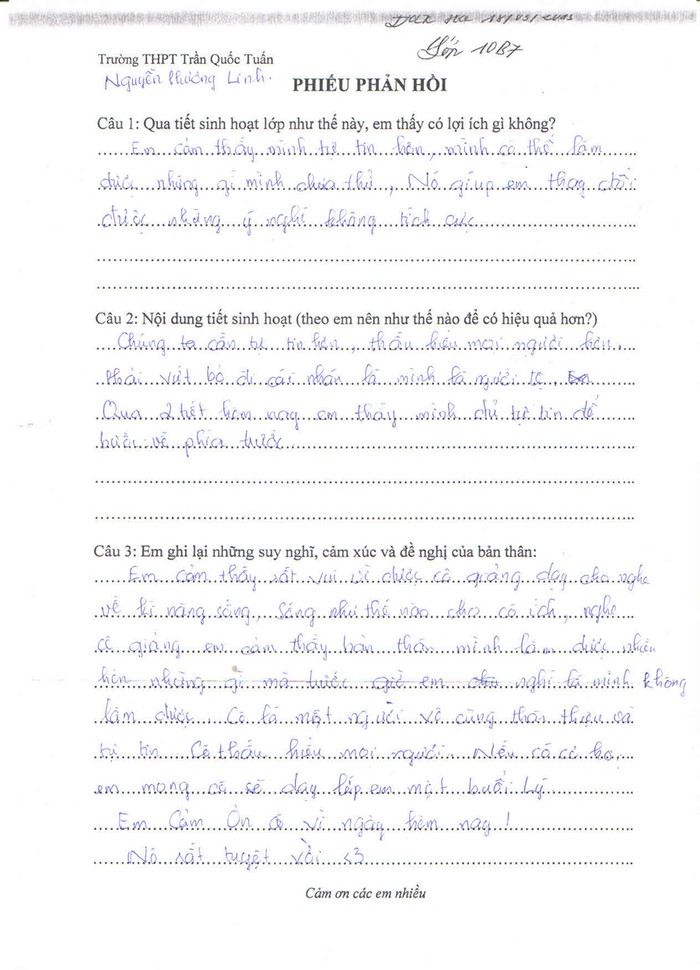 18/03/2013
Lớp 10B7
Trường THPT Trần Quốc Tuấn
Nguyễn Phương Linh.
PHIẾU PHẢN HỒI
Câu 1: Qua tiết sinh hoạt lớp như thế này, em thấy có lợi ích gì không?
Em cảm thấy mình tự tin hơn, mình có thể làm
được những gì mình chưa thử, Nó giúp em thay đổi
được những ý nghĩ không tích cực
Câu 2: Nội dung tiết sinh hoạt (theo em nên như thế nào để có hiệu quả hơn?)
Chúng ta cần tự tin hơn, thấu hiểu mọi người hơn.
Phải vứt bỏ đi cái nhãn là mình là người tệ,
Qua 2 tiết hôm nay em thấy mình đủ tự tin để
bước về phía trước
Câu 3: Em ghi lại những suy nghĩ, cảm xúc và đề nghị của bản thân:
Em cảm thấy rất vui vì được cô giảng dạy cho nghe
về kĩ năng sống, sống như thế nào cho có ích, nghe
cô giảng em cảm thấy bản thân mình làm được nhiều
hơn những gì mà trước giờ em nghĩ là mình không
làm được. Cô là một người vô cùng thân thiện và
tự tin. Cô thấu hiểu mọi người. Nếu có cơ hội,
em mong cô sẽ dạy lớp em một buổi Lý
Em Cảm Ơn cô vì ngày hôm nay!
Nó rất tuyệt vời <3
Cảm ơn các em nhiều